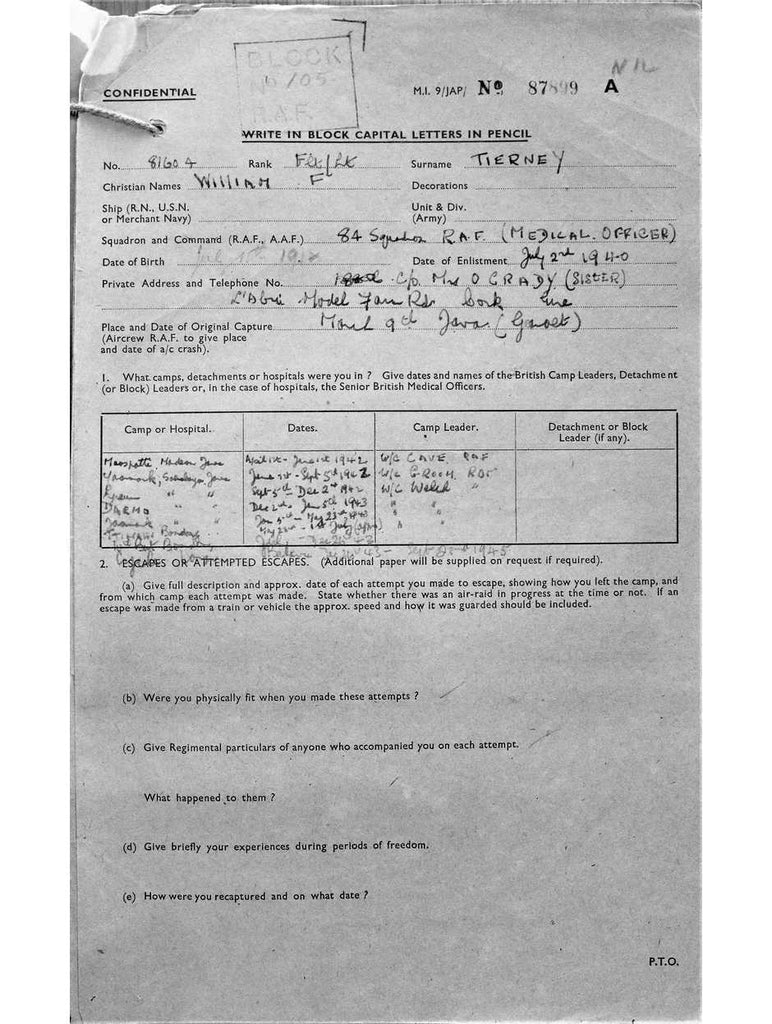 BLOCK
No 105
R.A.F.
NIL
CONFIDENTIAL
M.I. 9/JAP/ No. 87899 A
WRITE IN BLOCK CAPITAL LETTERS IN PENCIL
No. 81604 Rank Flt/Lt Surname TIERNEY
Christian Names WILLIAM F Decorations
Ship (R.N., U.S.N. or Merchant Navy) Unit & Div. (Army)
Squadron and Command (R.A.F., A.A.F.) 84 Squadron R.A.F. (MEDICAL OFFICER)
Date of Birth July 1912 Date of Enlistment July 2nd 1940
Private Address and Telephone No. c/o. Mrs O GRADY (SISTER)
Model Farm Rd. Cork Eire
Place and Date of Original Capture March 9th Java (Garoet)
(Aircrew R.A.F. to give place
and date of a/c crash).
1. What camps, detachments or hospitals were you in ? Give dates and names of the British Camp Leaders, Detachment
(or Block) Leaders or, in the case of hospitals, the Senior British Medical Officers.
Camp or Hospital. Dates. Camp Leader. Detachment or Block Leader (if any).
Java April 1st - June 1st 1942 W/C CAVE RAF
Java June 1st - Sept 5th 1942 W/C GROOM RAF
Lyceum " " Sept 5th - Dec 2nd 1942 W/C Welch "
DARMO " Dec 2nd - Jan 5th 1943 " "
Jaarmarkt " " Jan 5th - May 23rd 1943 "
Bandong May 22nd - 1st July "
Sept 1945
2. ESCAPES OR ATTEMPTED ESCAPES. (Additional paper will be supplied on request if required).
(a) Give full description and approx. date of each attempt you made to escape, showing how you left the camp, and
from which camp each attempt was made. State whether there was an air-raid in progress at the time or not. If an
escape was made from a train or vehicle the approx. speed and how it was guarded should be included.
(b) Were you physically fit when you made these attempts ?
(c) Give Regimental particulars of anyone who accompanied you on each attempt.
What happened to them ?
(d) Give briefly your experiences during periods of freedom.
(e) How were you recaptured and on what date ?
P.T.O.